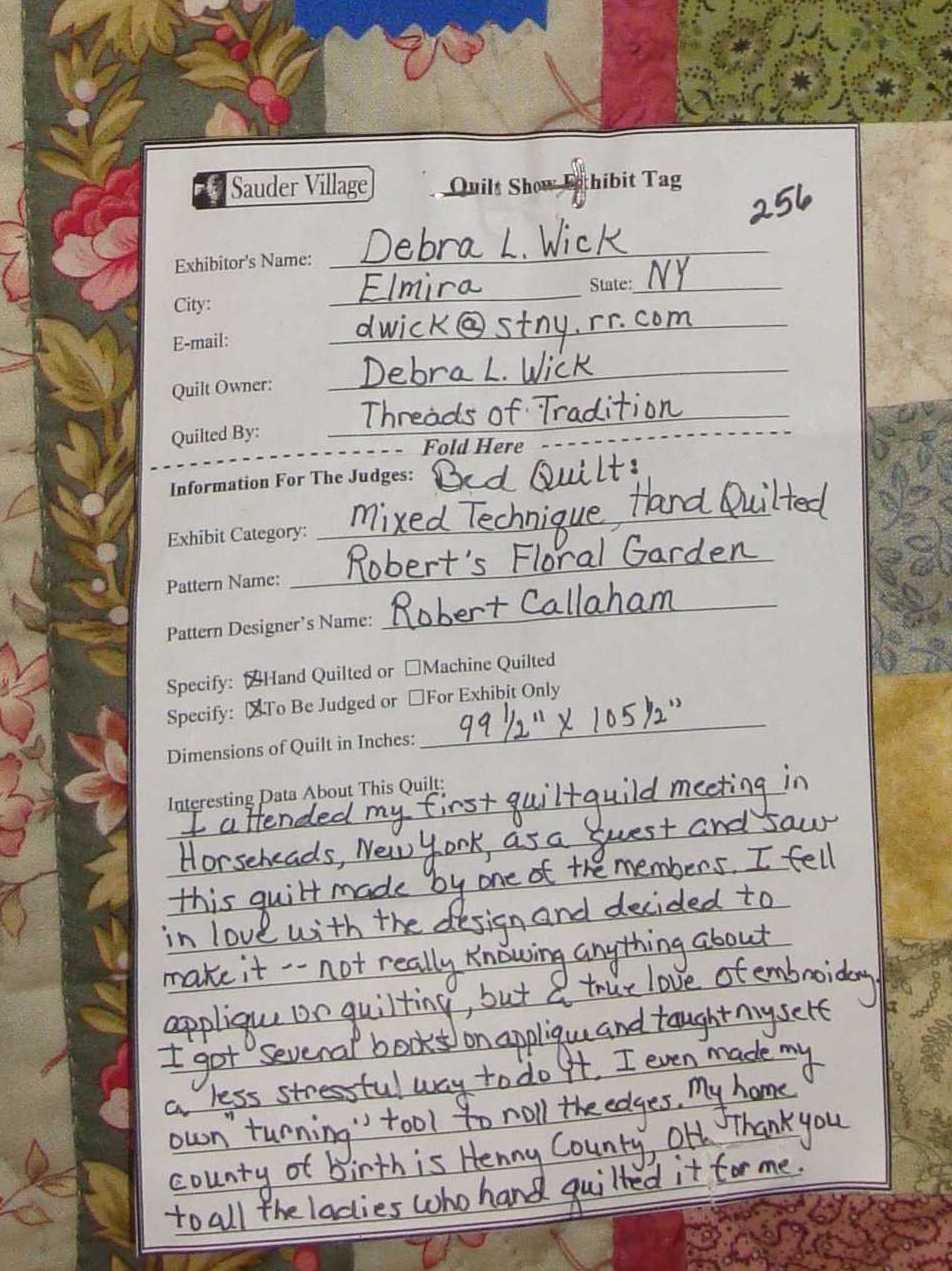 Sauder Village Quilt Show Exhibit Tag
256
Exhibitor's Name: Debra L. Wick
City: Elmira State: NY
E-mail: dwick@stny.rr.com
Quilt Owner: Debra L. Wick
Quilted By: Threads of Tradition
Fold Here
Information For The Judges: Bed Quilt:
Exhibit Category: Mixed Technique, Hand Quilted
Pattern Name: Robert's Floral Garden
Pattern Designer's Name: Robert Callaham
Specify: ☒Hand Quilted or ☐Machine Quilted
Specify: ☒To Be Judged or ☐For Exhibit Only
Dimensions of Quilt in Inches: 99 1/2" X 105 1/2"
Interesting Data About This Quilt:
I attended my first quilt guild meeting in
Horseheads, New York, as a guest and saw
this quilt made by one of the members. I fell
in love with the design and decided to
make it -- not really knowing anything about
applique or quilting, but a true love of embroidery.
I got several books on applique and taught myself
a less stressful way to do it. I even made my
own "turning" tool to roll the edges. My home
county of birth is Henny County, OH. Thank you
to all the ladies who hand quilted it for me.